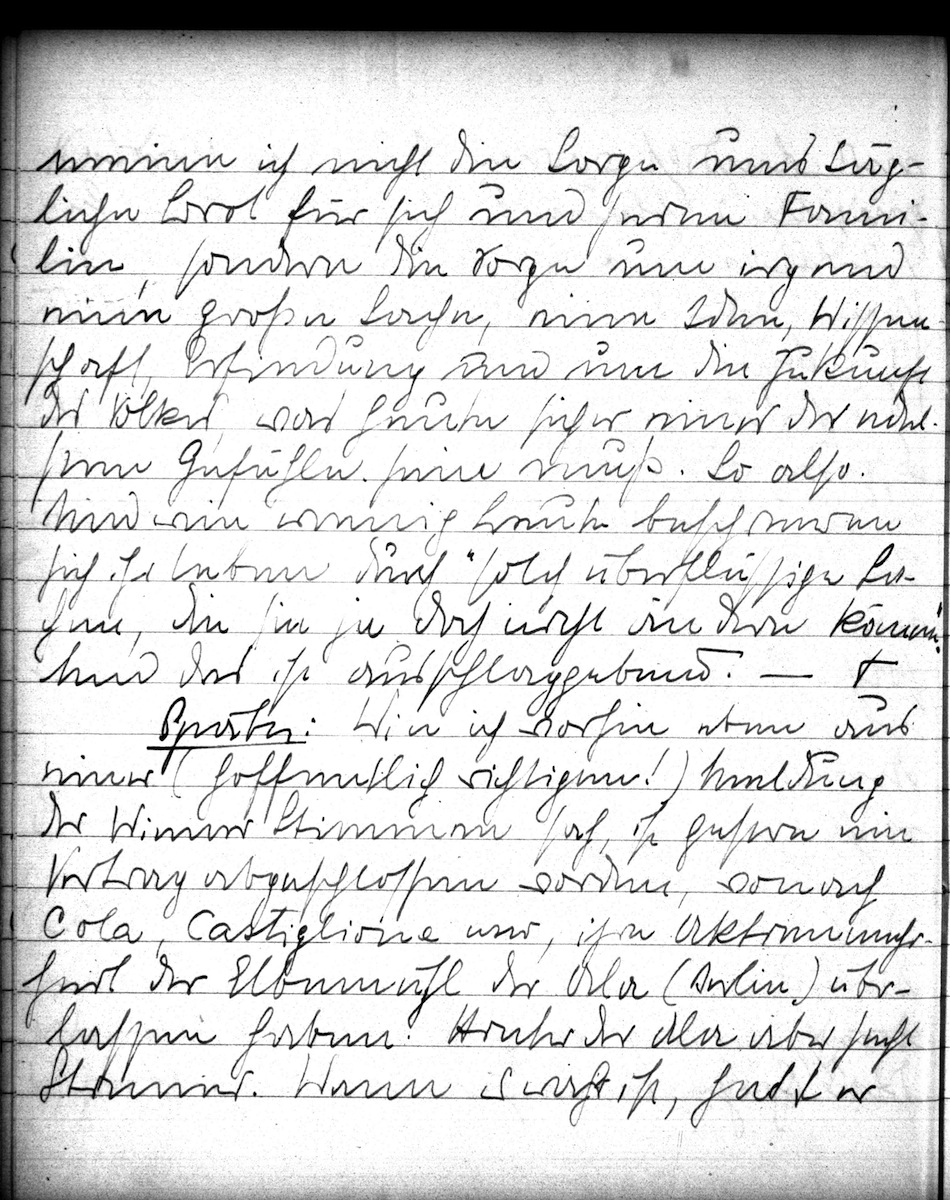 meine ich nicht die Sorge ums täg-
liche Brot für sich und seine Fami-
lie, sondern die Sorge um irgend
eine große Sache, eine Idee, Wissen
schaft, Erfindung und um die Zukunft
des Volkes, was heute sicher eines der edel-
sten Gefühle sein muß. So also.
Und wie wenig Leute beschweren
sich ihr Leben durch "solch überflüssige Sa-
chen, die sie ja doch nicht ändern können"
Und das ist ausschlaggebend. —
Später: Wie ich vorhin eben aus
einer (hoffentlich richtigen!) Meldung
der Wiener Stimmen sah, ist gestern ein
Vertrag abgeschlossen worden, wonach
Cola, Castiglione usw, ihre Aktienmehr-
heit der Elbemühl der Ala (Berlin) über-
lassen haben. Hinter der Ala aber steht
Stinnes. Wenn es wahr ist, hat er